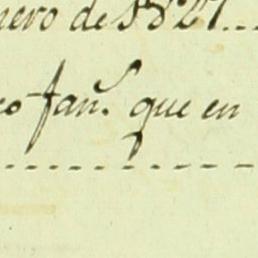 nero de 1827...
co fan.s que en